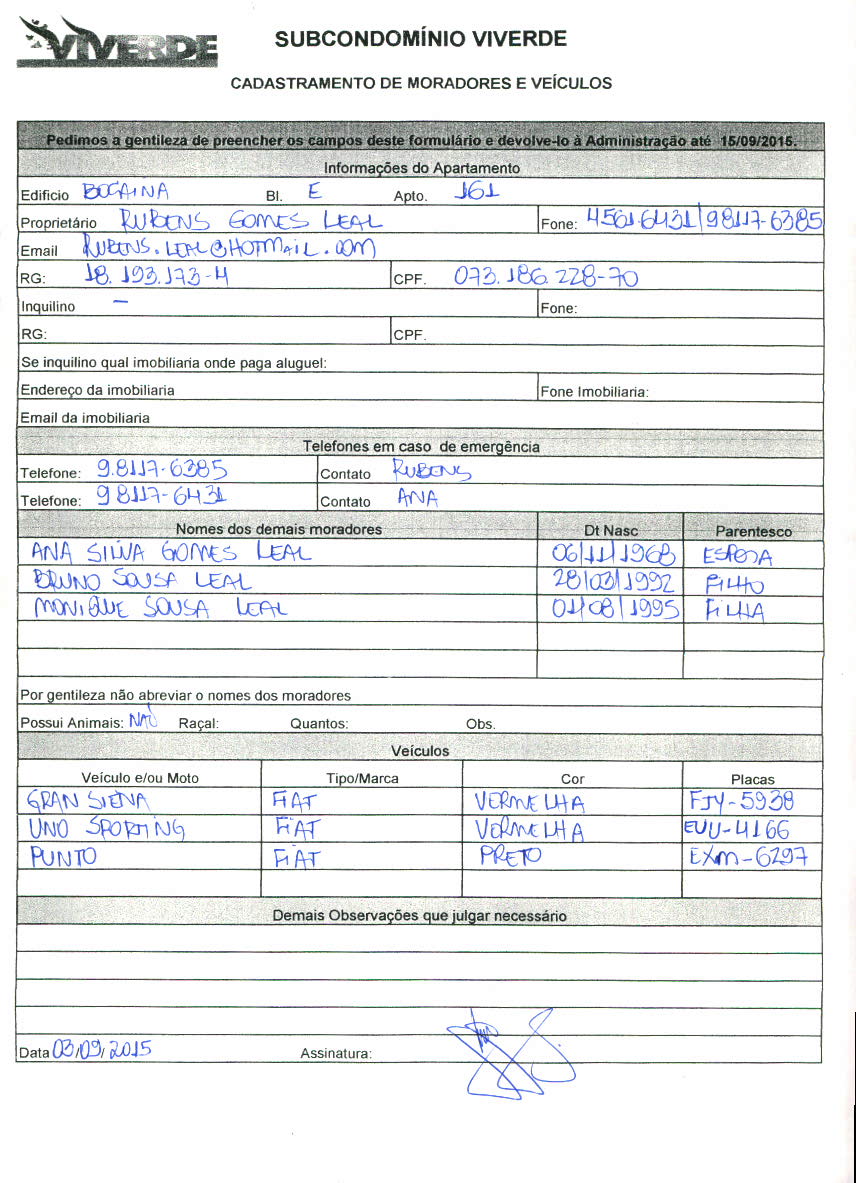 VIVERDE
SUBCONDOMÍNIO VIVERDE
CADASTRAMENTO DE MORADORES E VEÍCULOS
Pedimos a gentileza de preencher os campos deste formulário e devolve-lo à Administração até 15/09/2015.
Informações do Apartamento
Edificio BOCAINA Bl. E Apto. 161
Proprietário RUBENS GOMES LEAL Fone: 4561-6431/98117-6385
Email RUBENS.LEAL@HOTMAIL.COM
RG: 18.193.173-4 CPF. 073.186.228-70
Inquilino - Fone:
RG: CPF.
Se inquilino qual imobiliaria onde paga aluguel:
Endereço da imobiliaria Fone Imobiliaria:
Email da imobiliaria
Telefones em caso de emergência
Telefone: 9.8117-6385 Contato RUBENS
Telefone: 98117-6431 Contato ANA
Nomes dos demais moradores Dt Nasc Parentesco
ANA SILVA GOMES LEAL 06/11/1968 ESPOSA
BRUNO SOUSA LEAL 28/03/1992 FILHO
MONIQUE SOUSA LEAL 01/08/1995 FILHA
Por gentileza não abreviar o nomes dos moradores
Possui Animais: NÃO Raçal: Quantos: Obs.
Veículos
Veículo e/ou Moto Tipo/Marca Cor Placas
GRAN SIENA FIAT VERMELHA FJY-5938
UNO SPORTING FIAT VERMELHA EUU-4166
PUNTO FIAT PRETO EXM-6297
Demais Observações que julgar necessário
Data 03/09/2015 Assinatura: